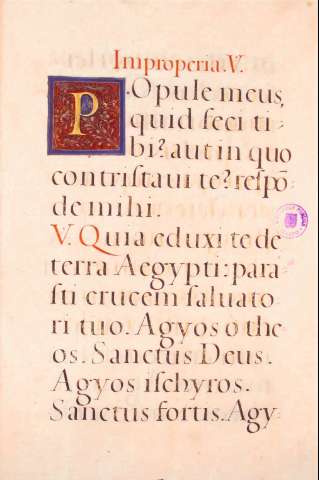 Improperia. V.
POpule meus,
quid feci ti-
bi? aut in quo
contristaui te? respō-
de mihi.
V. Quia eduxi te de
terra Aegypti: para-
sti crucem saluato-
ri tuo. Agyos o the-
os. Sanctus Deus.
Agyos ischyros.
Sanctus fortis. Agy-